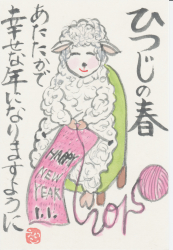 ひつじの春
あたたかで
幸せな年になりますように
HAPPY
NEW
YEAR
1.1.
2015